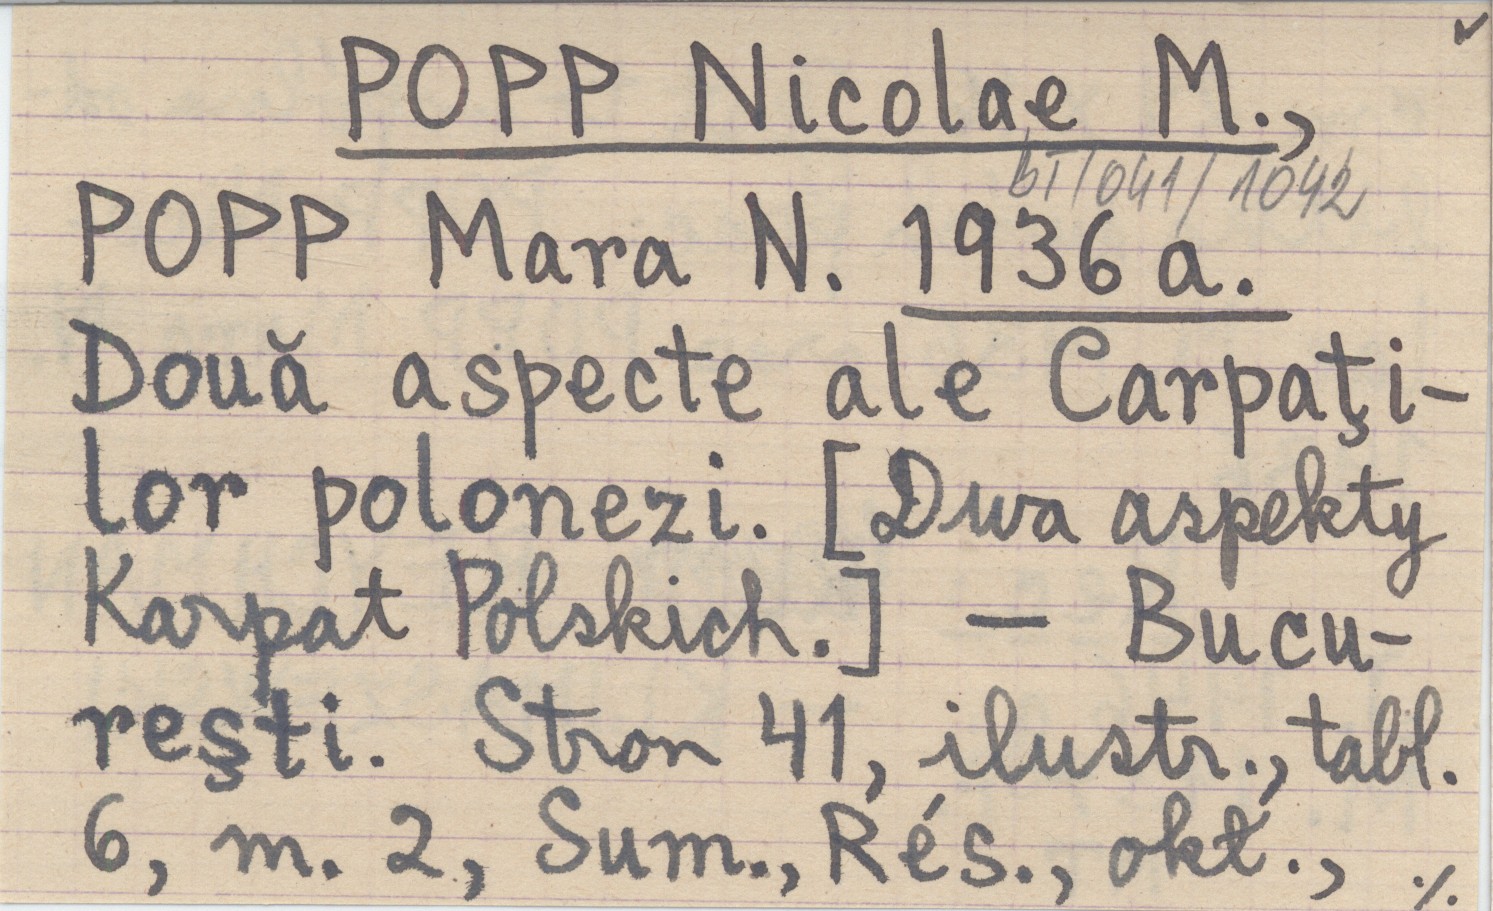 POPP Nicolae M.,
BT/041/1042
POPP Mara N. 1936 a.
Două aspecte ale Carpaţi-
lor polonezi. [Dwa aspekty
Karpat Polskich.] — Bucu-
reşti. Stron 41, ilustr., tabl.
6, m. 2, Sum., Rés., okł., ./.